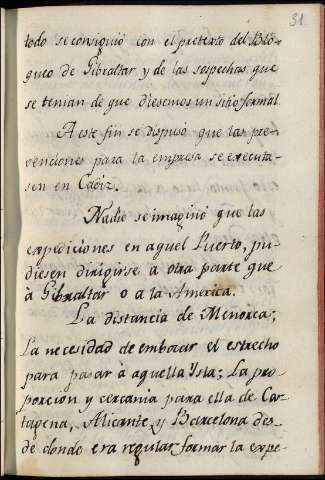 31
todo se consiguió con el pretexto del Blo-
queo de Gibraltar y de las sospechas que
se tenian de que diesemos un sitio formal.
A este fin se dispuso que las pre-
venciones para la empresa se executa-
sen en Cadiz.
Nadie se imaginó que las
expediciones en aquel Puerto, pu-
diesen dirigirse a otra parte que
à Gibraltar o a la America.
La distancia de Menorca;
La necesidad de embocar el estrecho
para pasar à aquella Ysla; La pro-
porcion y cercania para ella de Car-
tagena, Alicante y Barcelona des-
de donde era regular formar la expe-